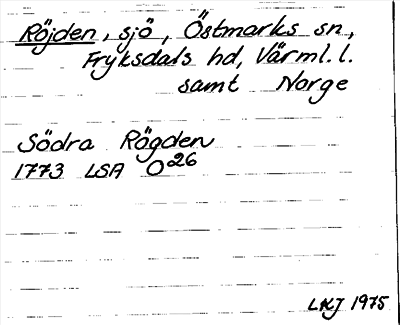 Röjden, sjö, Östmarks sn,
Fryksdals hd, Värml. l.
samt Norge
Södra Rögden
1773 LSA O26
LKJ 1975